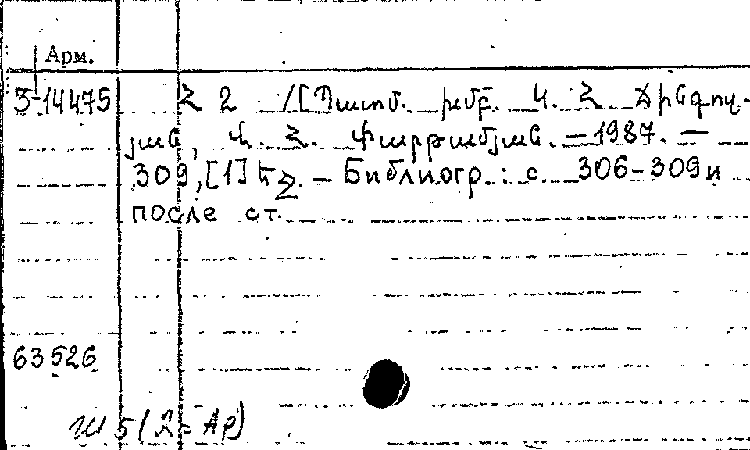 Арм.
3-14475 Հ 2 /[Պատմ. խմբ. Վ. Հ. Ճինգոզ-
յան, Վ. Հ. Փարթամյան. – 1987. –
309, [1] էջ. – Библиогр.: с. 306-309 и
после ст.
63526
Ш 5(2=Ар)